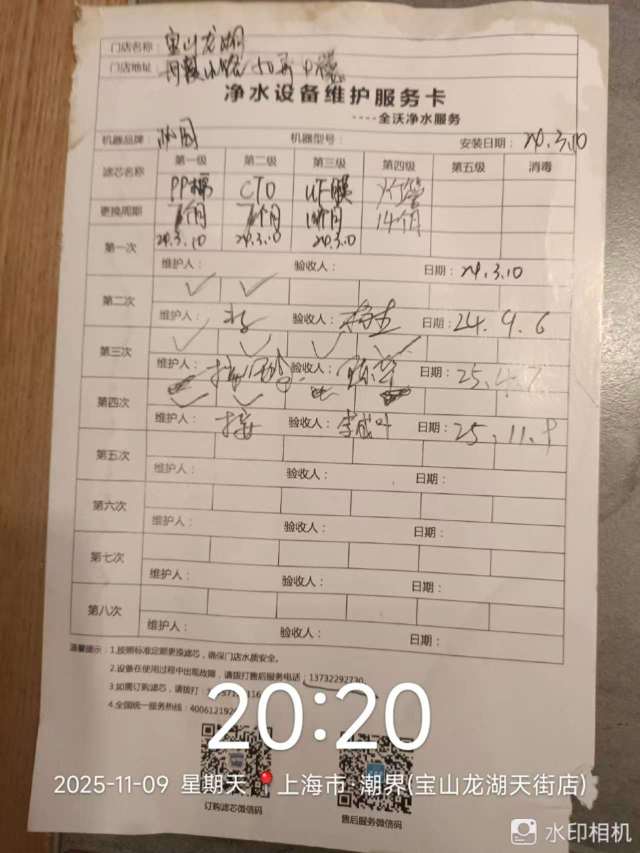 门店名称：宝山龙湖
门店地址
净水设备维护服务卡
----全沃净水服务
机器品牌： 机器型号： 安装日期：24.3.10
滤芯名称 第一级 第二级 第三级 第四级 第五级 消毒
PP棉 CTO UF膜
更换周期 个月 个月 个月 14个月
第一次 24.3.10 24.3.10 24.3.10
维护人： 验收人： 日期：24.3.10
第二次 ✓ ✓
维护人： 验收人： 日期：24.9.6
第三次 ✓ ✓ ✓ ✓
维护人： 验收人： 日期：25.4.
第四次 ✓ ✓
维护人： 验收人： 日期：25.11.9
第五次
维护人： 验收人： 日期：
第六次
维护人： 验收人： 日期：
第七次
维护人： 验收人： 日期：
第八次
维护人： 验收人： 日期：
温馨提示：1.按照标准定期更换滤芯，确保门店水质安全。
2.设备在使用过程中出现故障，请拨打售后服务电话：13732292730
3.如需订购滤芯，请拨打：
4.全国统一服务热线：40061219
20:20
2025-11-09 星期天 上海市·潮界(宝山龙湖天街店)
订购滤芯微信码 售后服务微信码
水印相机